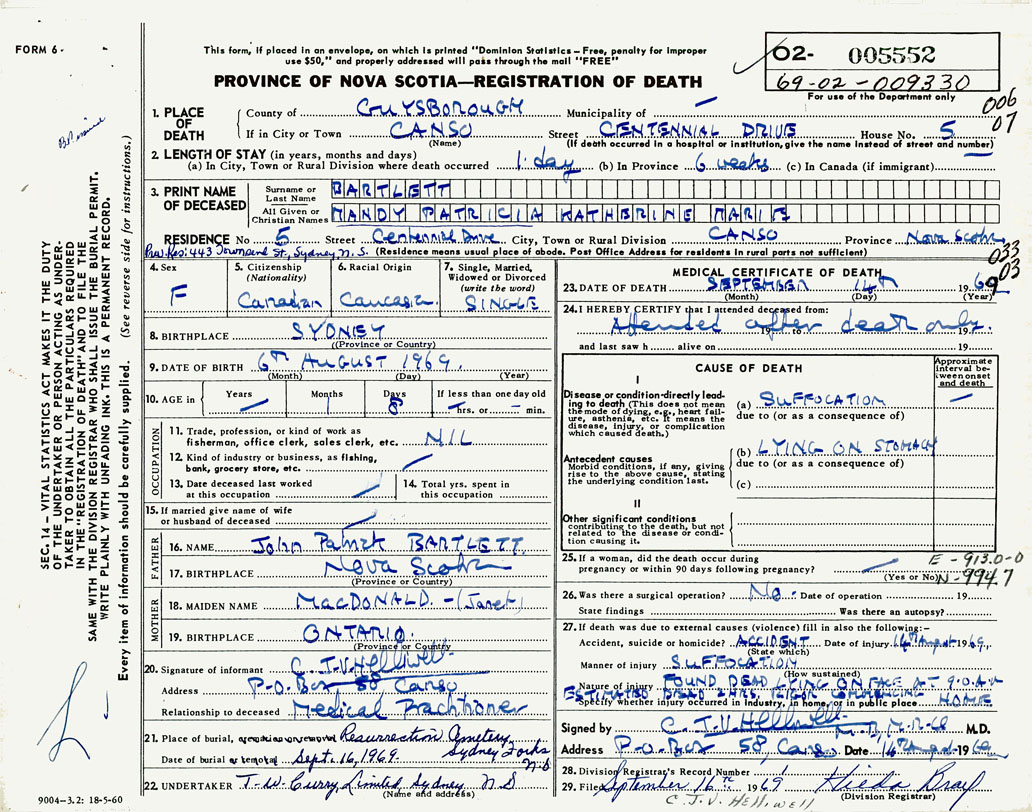 FORM 6-
This form, if placed in an envelope, on which is printed "Dominion Statistics – Free, penalty for improper
use $50," and properly addressed will pass through the mail "FREE"
PROVINCE OF NOVA SCOTIA—REGISTRATION OF DEATH
O2- 005552
69-02-009330
For use of the Department only
006
07
SEC. 14 – VITAL STATISTICS ACT MAKES IT THE DUTY
OF THE UNDERTAKER OR PERSON ACTING AS UNDER-
TAKER TO OBTAIN ALL THE PARTICULARS REQUIRED
IN THE "REGISTRATION OF DEATH" AND TO FILE THE
SAME WITH THE DIVISION REGISTRAR WHO SHALL ISSUE THE BURIAL PERMIT.
WRITE PLAINLY WITH UNFADING INK. THIS IS A PERMANENT RECORD.
Every item of information should be carefully supplied. (See reverse side for instructions.)
1. PLACE OF DEATH
County of GUYSBOROUGH Municipality of —
If in City or Town CANSO Street CENTENNIAL DRIVE House No. 5
(Name) (If death occurred in a hospital or institution, give the name instead of street and number)
2. LENGTH OF STAY (in years, months and days)
(a) In City, Town or Rural Division where death occurred 1 day (b) In Province 6 weeks (c) In Canada (if immigrant)
3. PRINT NAME OF DECEASED
Surname or Last Name BARTLETT
All Given or Christian Names MANDY PATRICIA KATHERINE MARIE
RESIDENCE No 5 Street Centennial Drive City, Town or Rural Division CANSO Province Nova Scotia
Res: 443 Townsend St., Sydney, N.S. (Residence means usual place of abode. Post Office Address for residents in rural parts not sufficient)
033
03
4. Sex
F
5. Citizenship
(Nationality)
Canadian
6. Racial Origin
Caucasian
7. Single, Married,
Widowed or Divorced
(write the word)
SINGLE
8. BIRTHPLACE SYDNEY
(Province or Country)
9. DATE OF BIRTH 6th AUGUST 1969.
(Month) (Day) (Year)
10. AGE in Years — Months 1 Days 8 If less than one day old — hrs. or — min.
OCCUPATION
11. Trade, profession, or kind of work as
fisherman, office clerk, sales clerk, etc. NIL
12. Kind of industry or business, as fishing,
bank, grocery store, etc.
13. Date deceased last worked
at this occupation
14. Total yrs. spent in
this occupation
15. If married give name of wife
or husband of deceased
FATHER
16. NAME John Patrick BARTLETT
17. BIRTHPLACE Nova Scotia
(Province or Country)
MOTHER
18. MAIDEN NAME MACDONALD – (Janet)
19. BIRTHPLACE ONTARIO.
(Province or Country)
20. Signature of informant C. J. V. Helliwell
Address P.O. Box 58 Canso
Relationship to deceased Medical Practitioner
21. Place of burial, cremation or removal Resurrection Cemetery, Sydney Forks N.S
Date of burial or removal Sept. 16, 1969.
22. UNDERTAKER T.W. Curry Limited Sydney N S
(Name and address)
9004–3.2: 18-5-60
MEDICAL CERTIFICATE OF DEATH
23. DATE OF DEATH SEPTEMBER 14th 1969
(Month) (Day) (Year)
24. I HEREBY CERTIFY that I attended deceased from:
Attended after death only.
and last saw h alive on 19
CAUSE OF DEATH
Approximate interval between onset and death
I
Disease or condition-directly lead-
ing to death (This does not mean
the mode of dying, e.g., heart fail-
ure, asthenia, etc. It means the
disease, injury, or complication
which caused death.)
(a) SUFFOCATION —
due to (or as a consequence of)
Antecedent causes
Morbid conditions, if any, giving
rise to the above cause, stating
the underlying condition last.
(b) LYING ON STOMACH
due to (or as a consequence of)
(c)
II
Other significant conditions
contributing to the death, but not
related to the disease or condi-
tion causing it.
25. If a woman, did the death occur during
pregnancy or within 90 days following pregnancy? —
(Yes or No)
E – 913.0-0
N-994.7
26. Was there a surgical operation? No. Date of operation 19
State findings Was there an autopsy?
27. If death was due to external causes (violence) fill in also the following:–
Accident, suicide or homicide? ACCIDENT Date of injury 14th August 1969.
(State which)
Manner of injury SUFFOCATION
(How sustained)
Nature of injury FOUND DEAD LYING ON FACE AT 9.0 AM
ESTIMATED DEAD 2 HRS, RIGOR COMMENCING HOME
Specify whether injury occurred in industry, in home, or in public place
Signed by C. J. V. Helliwell M.D.
Address P.O. Box 58 Canso. Date 14th August 1969
28. Division Registrar's Record Number 1
29. Filed September 16th 1969 Hilda Bray
(Division Registrar)
C. J. V. HELLIWELL